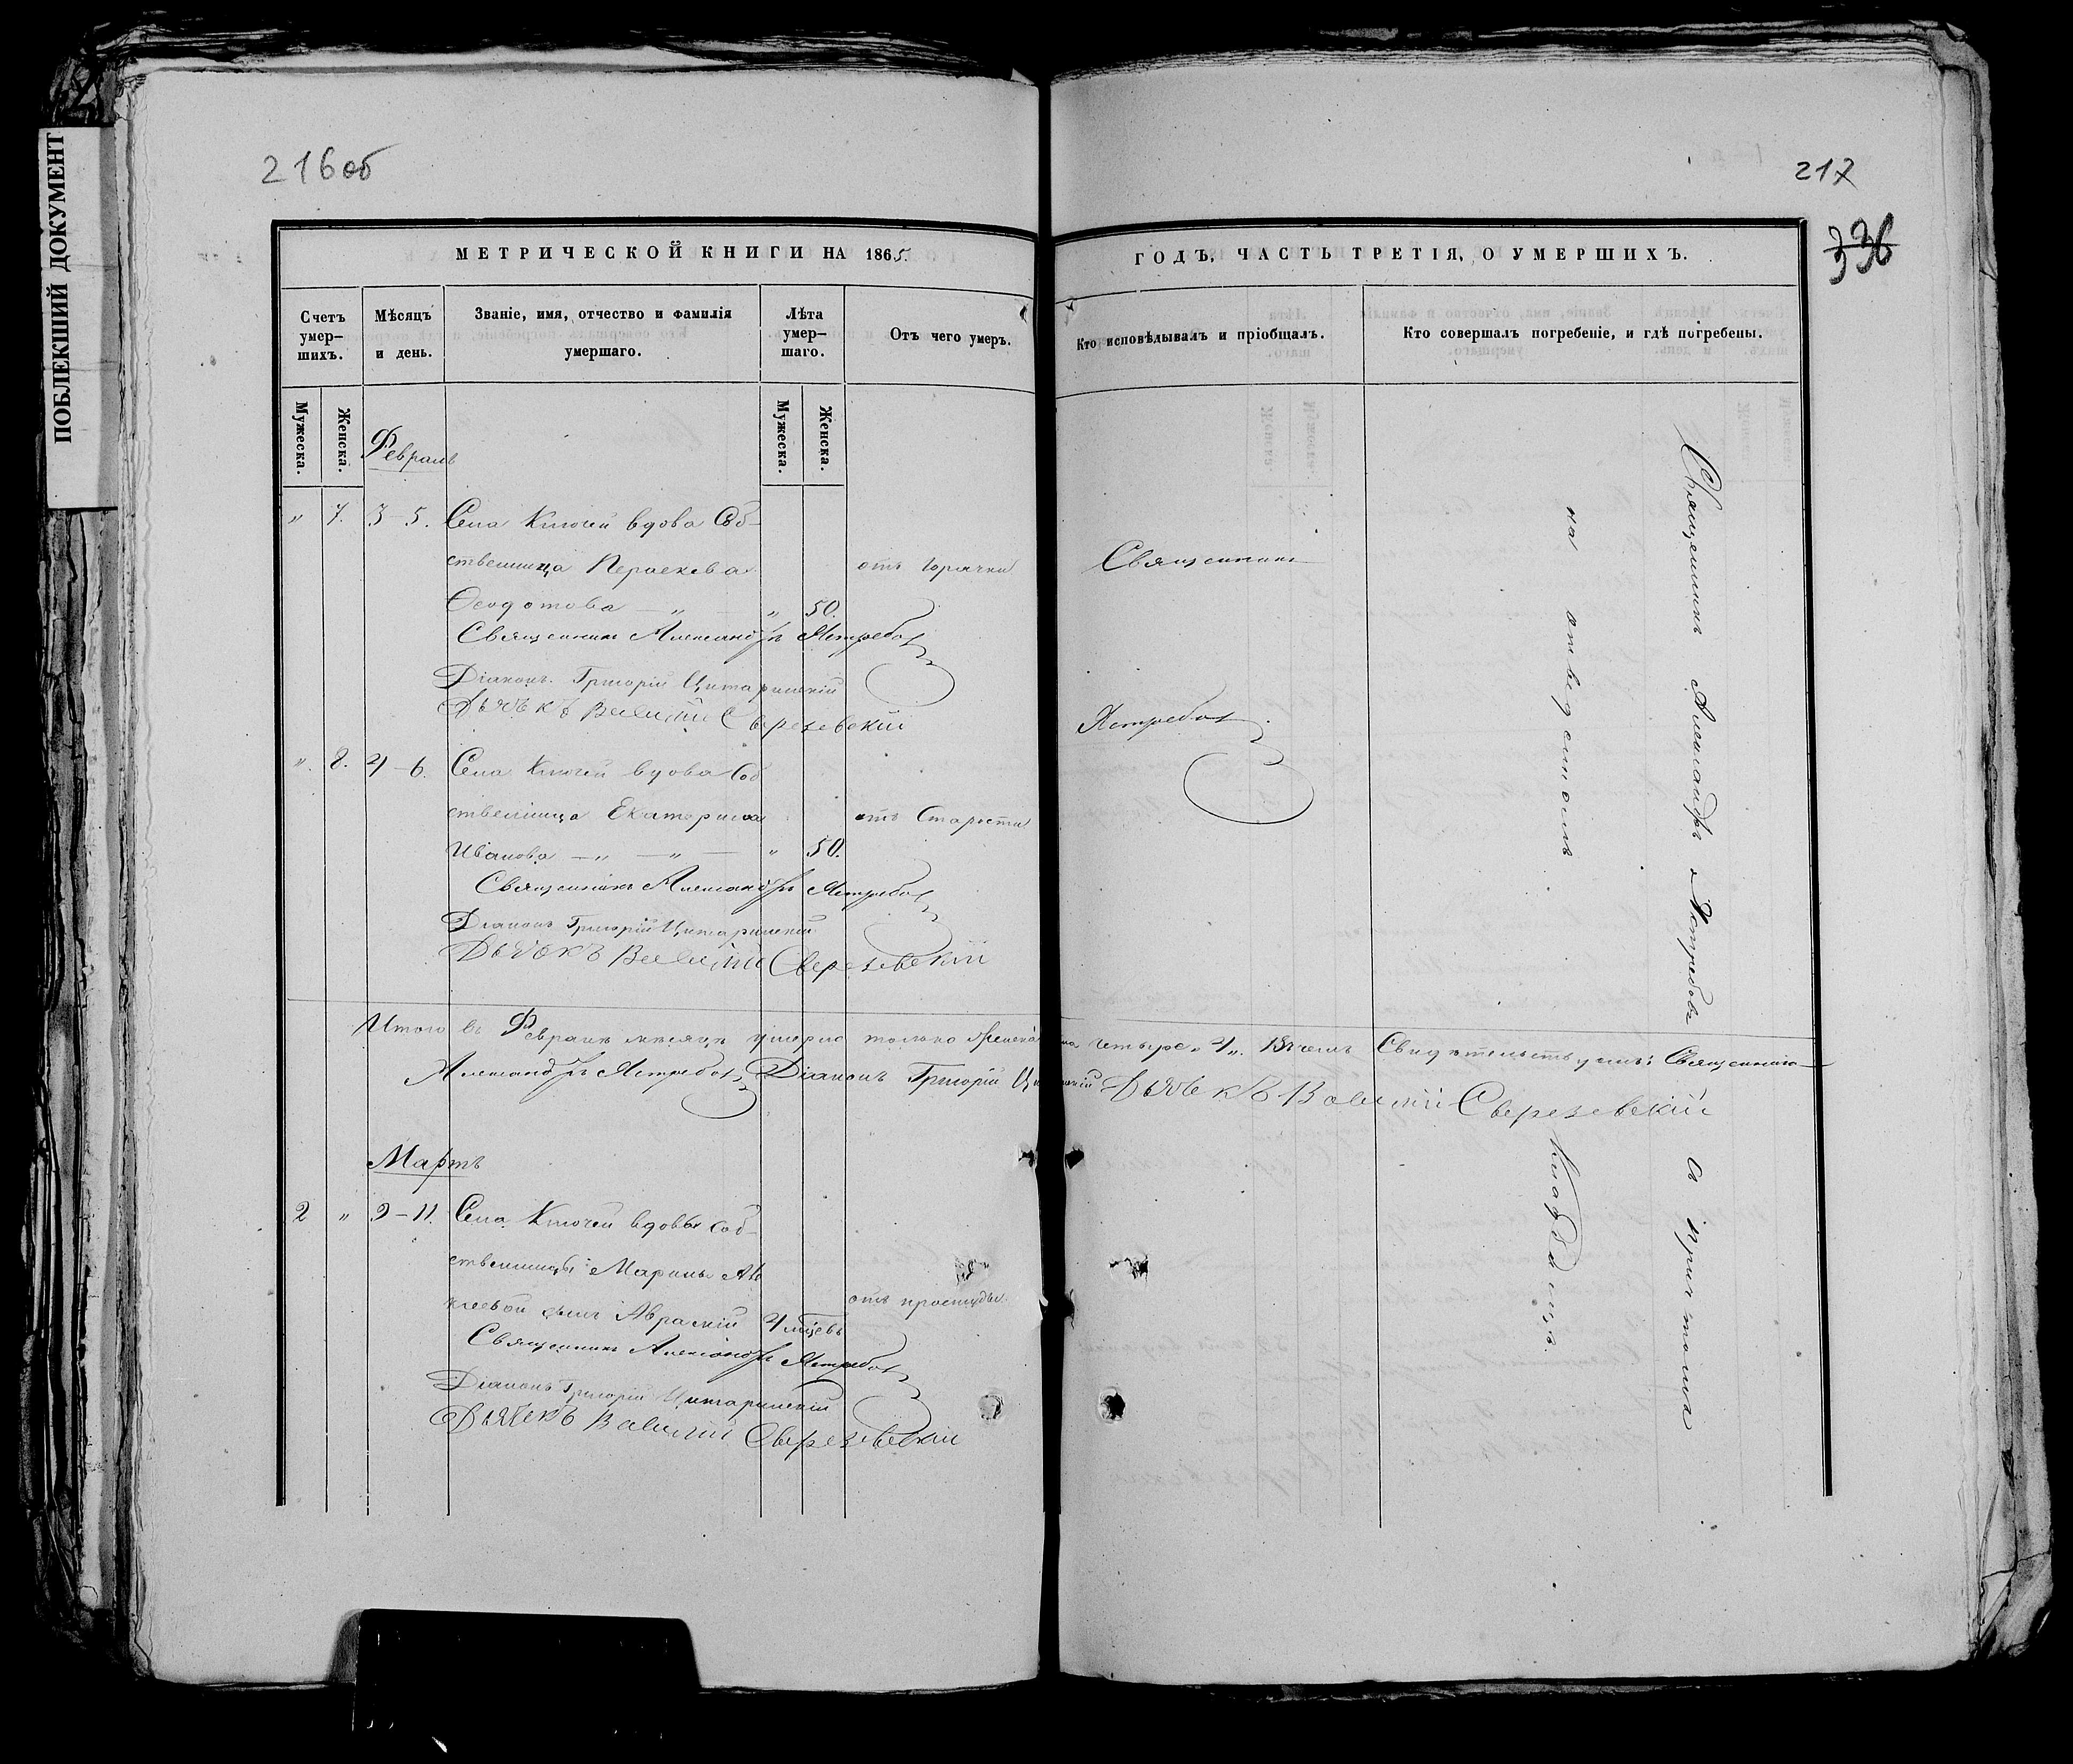 ПОБЛЕКШИЙ ДОКУМЕНТ
216об
МЕТРИЧЕСКОЙ КНИГИ НА 1865.
Счетъ умер-
шихъ.
Мѣсяцъ
и день.
Званіе, имя, отчество и фамилія
умершаго.
Лѣта
умер-
шаго.
Отъ чего умеръ.
Мужеска.
Женска.
Мужеска.
Женска.
Февраль
" 7. 3-5. Села Ключей вдова Соб-
ственница Параскева отъ горячки
Ѳеодотова — " — " 50.
Священникъ Александръ Ястребовъ
Діаконъ Григорій
Дьячекъ Василій Сверезевскій
" 8. 4-6. Села Ключей вдова Соб
ственница Екатерина отъ Старости
Иванова — " — " — " 50.
Священникъ Александръ Ястребовъ
Діаконъ Григорій
Дьячекъ Василій Сверезевскій
Итого въ Февралѣ мѣсяцѣ умерло только женска
Александръ Ястребовъ Діаконъ Григорій
Мартъ
2 " 9-11. Села Ключей вдовы Соб-
ственницы Марины
сынъ отъ простуды
Священникъ Александръ Ястребовъ
Діаконъ Григорій
Дьячекъ Василій Сверезевскій
217
336
ГОДЪ, ЧАСТЬ ТРЕТІЯ, О УМЕРШИХЪ.
Кто исповѣдывалъ и пріобщалъ.
Кто совершалъ погребеніе, и гдѣ погребены.
Священникъ
Ястребовъ
Священникъ Александръ Ястребовъ
на отведенномъ
четыре "4". Въ чемъ Свидѣтельствуемъ: Священникъ
Дьячекъ Василій Сверезевскій
съ причтомъ
Кладбищѣ.